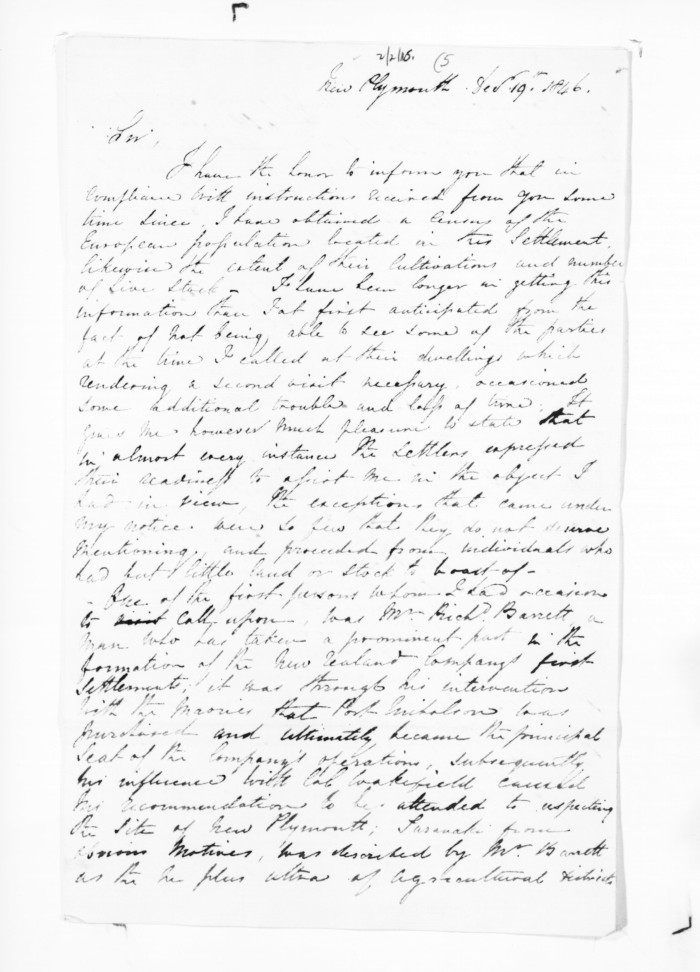 2/2/15. (5
New Plymouth Decr 19th 1846.
Sir,
I have the honor to inform you that in
compliance with instructions received from you some
time since, I have obtained a Census of the
European population located in this Settlement,
likewise the extent of their Cultivations and number
of Live Stock - I have been longer in getting this
information than I at first anticipated from the
fact of not being able to see some of the parties
at the time I called at their dwellings which
rendering a second visit necessary, occasioned
some additional trouble and loss of time; It
gives me however much pleasure to state that
in almost every instance the settlers expressed
their readiness to assist me in the object I
had in view, the exceptions that came under
my notice were so few that they do not deserve
mentioning, and proceeded from individuals who
had but little land or stock to boast of -
- One of the first persons whom I had occasion
to call upon, was Mr Richd Barrett, a
man who has taken a prominent part in the
formation of the New Zealand Company's first
Settlements; it was through his intervention
with the Maories that Port Nicholson was
purchased and ultimately became the principal
seat of the Company's operations, subsequently
his influence with Col Wakefield caused
his recommendation to be attended to respecting
the Site of New Plymouth; Taranaki from
obvious Motives, was described by Mr Barrett
as the ne plus ultra of agricultural districts